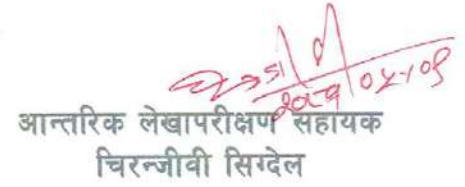 आन्तरिक लेखापरीक्षण सहायक
चिरन्जीवी सिग्देल